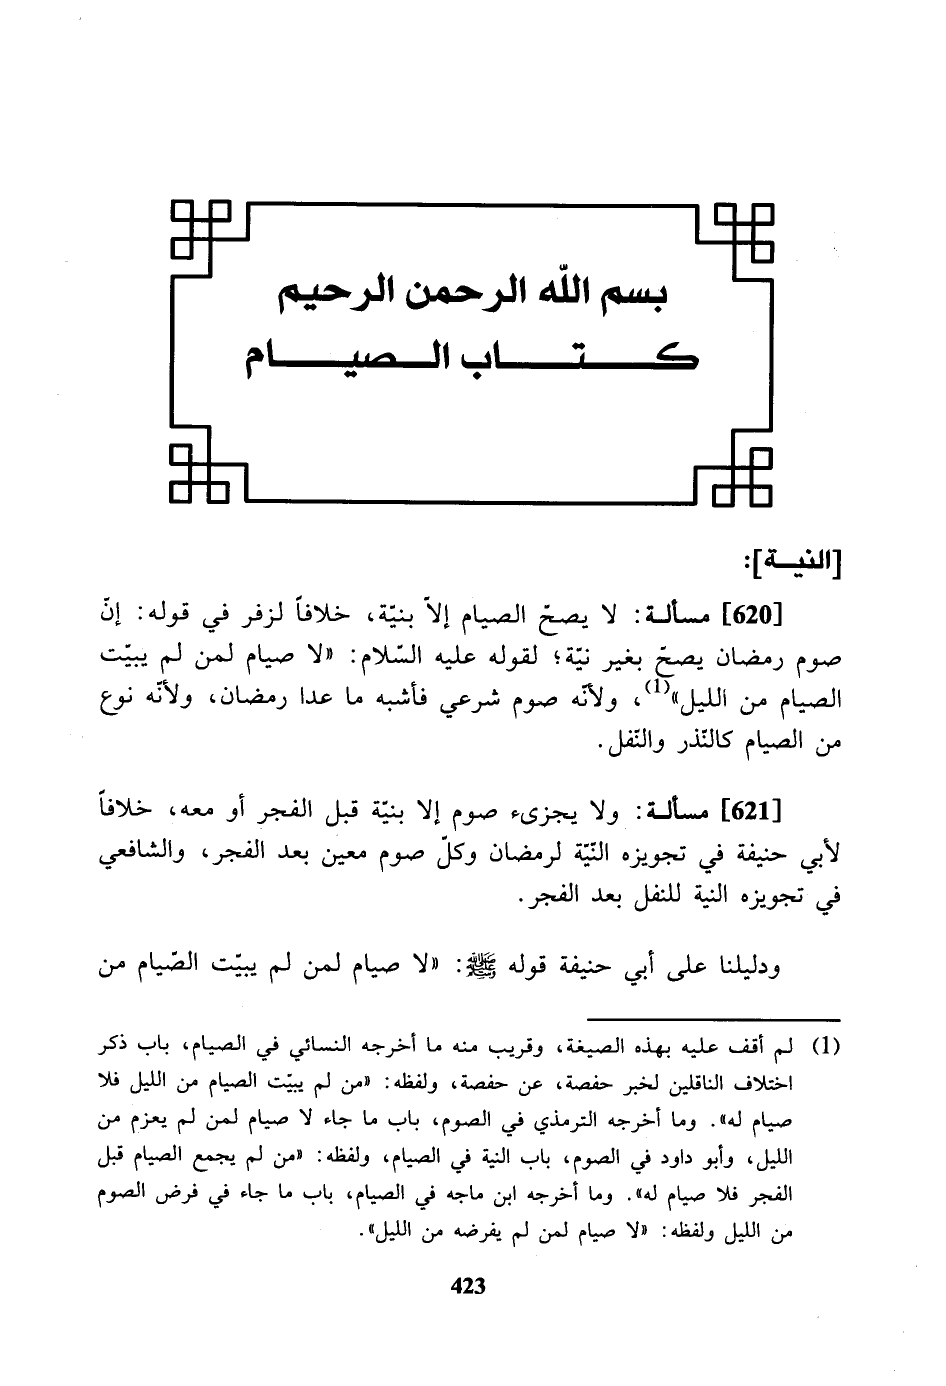 بسم الله الرحمن الرحيم
كتاب الصيام
[النية]:
[620] مسألة: لا يصحّ الصيام إلاّ بنيّة، خلافاً لزفر في قوله: إنّ
صوم رمضان يصحّ بغير نيّة؛ لقوله عليه السّلام: «لا صيام لمن لم يبيّت
الصيام من الليل»(1)، ولأنّه صوم شرعي فأشبه ما عدا رمضان، ولأنّه نوع
من الصيام كالنّذر والنّفل.
[621] مسألة: ولا يجزىء صوم إلا بنيّة قبل الفجر أو معه، خلافاً
لأبي حنيفة في تجويزه النّيّة لرمضان وكلّ صوم معين بعد الفجر، والشافعي
في تجويزه النية للنفل بعد الفجر.
ودليلنا على أبي حنيفة قوله ﷺ: «لا صيام لمن لم يبيّت الصّيام من
(1) لم أقف عليه بهذه الصيغة، وقريب منه ما أخرجه النسائي في الصيام، باب ذكر
اختلاف الناقلين لخبر حفصة، عن حفصة، ولفظه: «من لم يبيّت الصيام من الليل فلا
صيام له». وما أخرجه الترمذي في الصوم، باب ما جاء لا صيام لمن لم يعزم من
الليل، وأبو داود في الصوم، باب النية في الصيام، ولفظه: «من لم يجمع الصيام قبل
الفجر فلا صيام له». وما أخرجه ابن ماجه في الصيام، باب ما جاء في فرض الصوم
من الليل ولفظه: «لا صيام لمن لم يفرضه من الليل».
423